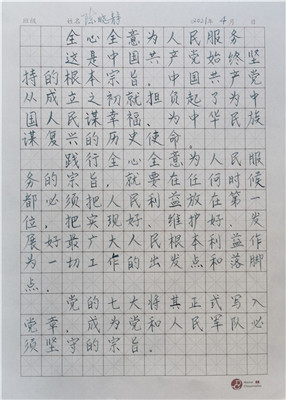 班级 姓名 陈晓静 2021年 4月 日
全心全意为人民服务
这是中国共产党始终坚
持的根本宗旨。中国共产党
从成立之初就担负起了为中
国人民谋幸福、为中华民族
谋复兴的历史使命。
践行全心全意为人民服
务的宗旨，就要在任何时候
都必须把人民利益放在第一
位，把实现好、维护好、发
展好最广大人民根本利益作
为一切工作的出发点和落脚
点。
党的七大将其正式写入
党章，成为党和人民军队必
须坚守的宗旨。